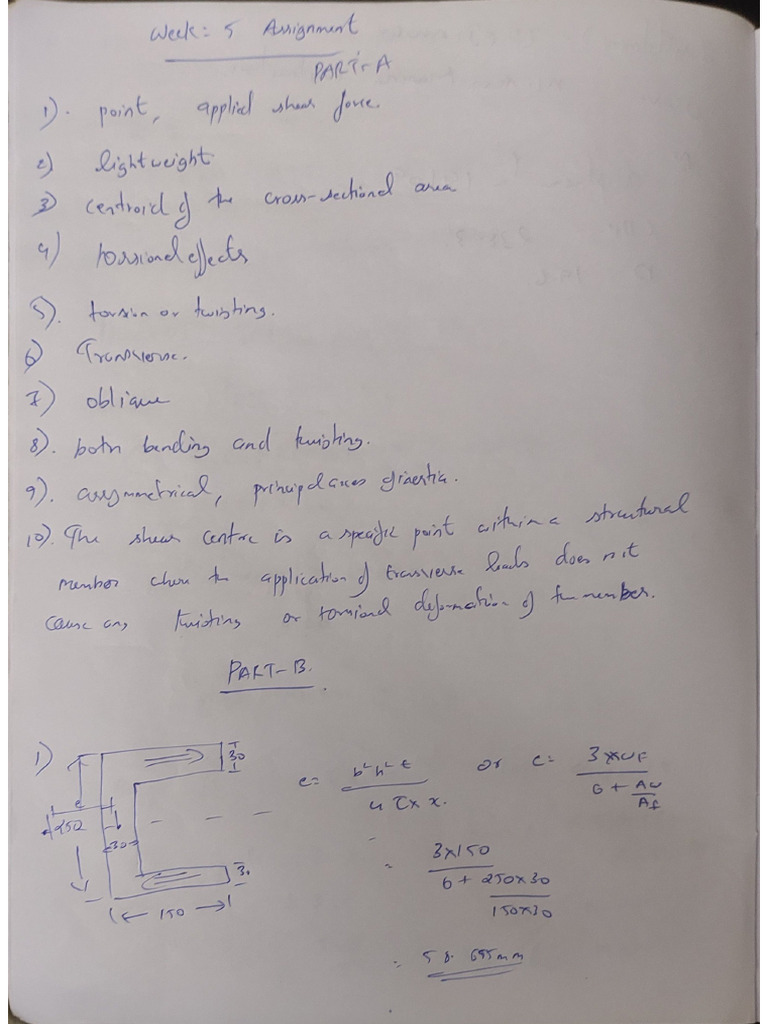 Week: 5 Assignment
PART-A
1). point, applied shear force.
2) lightweight
3) centroid of the cross-sectional area
4) torsional effects
5). torsion or twisting.
6) Transverse.
7) oblique
8). both bending and twisting.
9). assymmetrical, principal axes of inertia.
10). The shear centre is a specific point within a structural
member where the application of transverse loads does not
cause any twisting or torsional deformation of the member.
PART-B.
1)
30
e = b²h²t / 4 Ixx. or e = 3×wF / 6 + Aw/Af
e
250
30
= 3×150 / 6 + 250×30/150×30
30
150
= 58.695mm